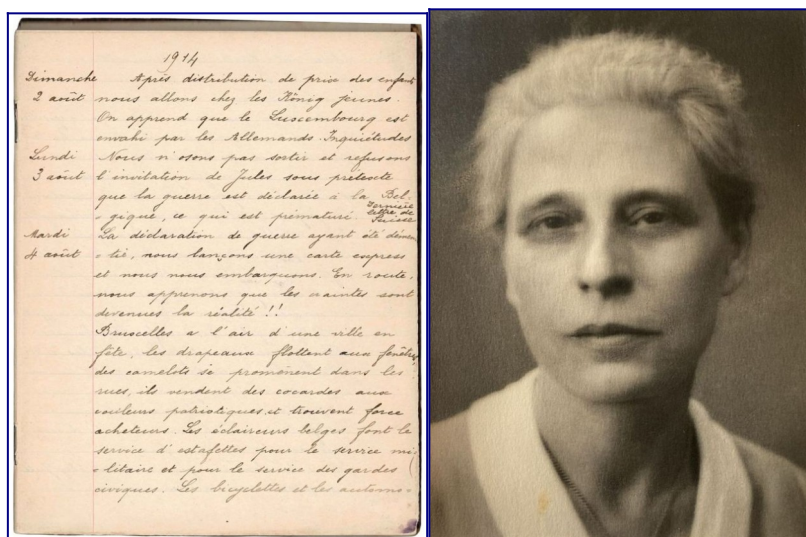 1914
Dimanche Après distribution de prix des enfants
2 août nous allons chez les König jeunes.
On apprend que le Luxembourg est
envahi par les Allemands. Inquiétudes
Lundi Nous n'osons pas sortir et refusons
3 août l'invitation de Jules sous prétexte
que la guerre est déclarée à la Bel-
-gique, ce qui est prématuré. Dernière lettre de Suisse
Mardi La déclaration de guerre ayant été démen
4 août -tie, nous lançons une carte express
et nous nous embarquons. En route,
nous apprenons que les craintes sont
devenues la réalité !!
Bruxelles a l'air d'une ville en
fête, les drapeaux flottent aux fenêtres
des camelots se promènent dans les
rues, ils vendent des cocardes aux
couleurs patriotiques et trouvent force
acheteurs. Les éclaireurs belges font le
service d'estafettes pour le service mi-
-litaire et pour le service des gardes
civiques. Les bicyclettes et les automo-